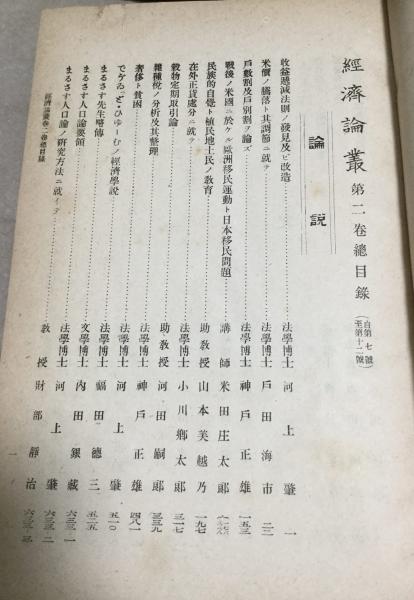 經濟論叢 第二卷總目錄 (自第七號 至第十二號)
論說
收益遞減法則ノ發見及ビ改造 法學博士 河上肇 一
米價ノ騰落ト其調節ニ就テ 法學博士 戶田海市 二三
戶數割及戶別割ヲ論ズ 法學博士 神戶正雄 一五三
戰後ノ米國ニ於ケル歐洲移民運動ト日本移民問題 講師 米田庄太郞
民族的自覺ト植民地土民ノ敎育 助敎授 山本美越乃 一九七
在外正貨處分ニ就テ 法學博士 小川鄕太郞 三一七
穀物定期取引論 助敎授 河田嗣郞 三三九
雜種稅ノ分析及其整理 法學博士 神戶正雄 四八一
奢侈ト貧困 法學博士 河上肇 五一〇
でヴゐど・ひゆーむノ經濟學說 法學博士 福田德三 五二五
まるさす先生略傳 文學博士 內田銀藏 六三一
まるさす人口論要領 法學博士 河上肇
まるさす人口論ノ硏究方法ニ就イテ 敎授 財部靜治
經濟論叢卷二卷總目錄
一